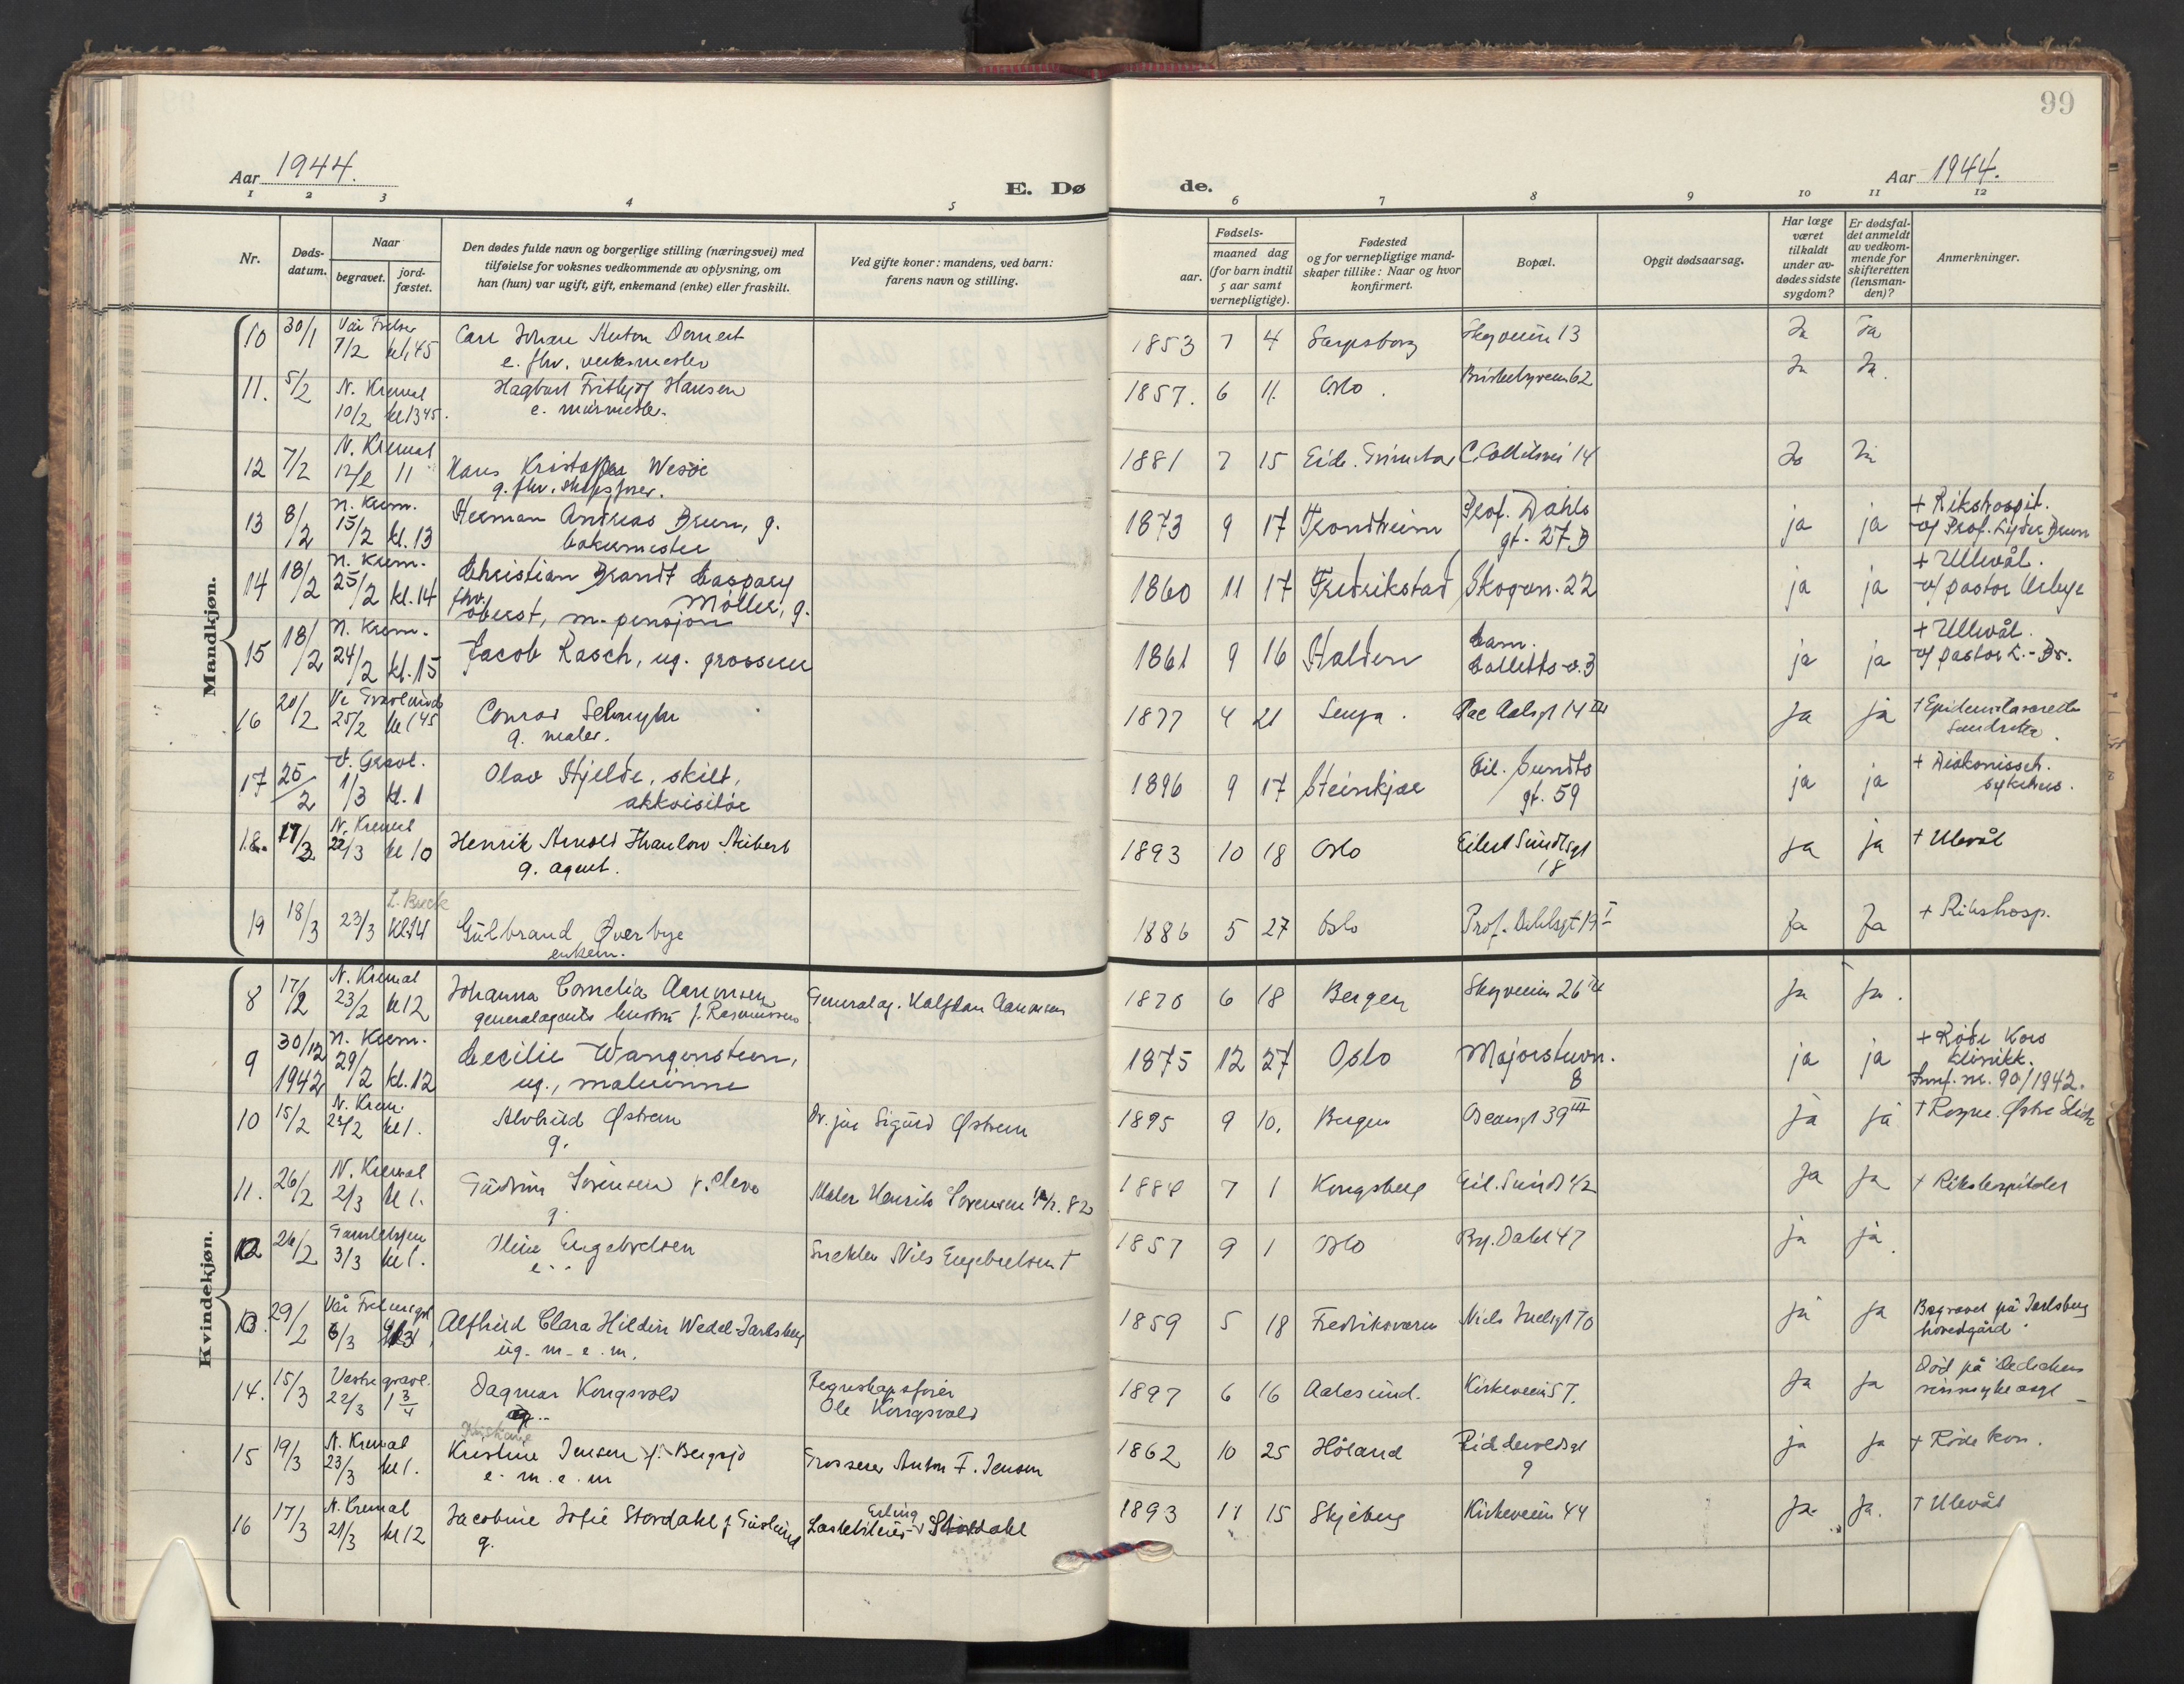 99
Aar 1944.
E. Dø
de.
Aar 1944.
1 2 3 4 5 6 7 8 9 10 11 12
Nr.
Døds-
datum.
Naar
begravet.
jord-
fæstet.
Den dødes fulde navn og borgerlige stilling (næringsvei) med
tilføielse for voksnes vedkommende av oplysning, om
han (hun) var ugift, gift, enkemand (enke) eller fraskilt.
Ved gifte koner: mandens, ved barn:
farens navn og stilling.
Fødsels-
aar.
maaned dag
(for barn indtil
5 aar samt
vernepligtige).
Fødested
og for vernepligtige mand-
skaper tillike: Naar og hvor
konfirmert.
Bopæl.
Opgit dødsaarsag.
Har læge
været
tilkaldt
under av-
dødes sidste
sygdom?
Er dødsfal-
det anmeldt
av vedkom-
mende for
skifteretten
(lensman-
den)?
Anmerkninger.
Mandkjøn.
10 30/1 Vår Frelser 7/2 Carl Johan Anton 1853 7 4 Sarpsborg 13 Ja Ja
e. fhv. verksmester
11. 5/2 N. Kremat 10/2 kl 1345. Hagbart Frithjof Hansen 1857. 6 11. Oslo. Briskebyveien 62 Ja Ja.
e. murmester.
12 7/2 N. Kremat 12/2 11 Hans Kristoffer Wesøe 1881 7 15 Eide. Grimstad C. Collettsvei 14 Ja Ja
g. fhv. skipsfører.
13 8/2 N. Krem. 15/2 kl. 13 Herman Andreas Bruun, g. 1873 9 17 Trondheim Prof. Dahls gt. 27B ja ja + Rikshospit.
bakermester v/ Prof. Lyder Brun
14 18/2 N. Krem. 25/2 kl. 14 Christian Brandt Caspary 1860 11 17 Fredrikstad Skogvn. 22 ja ja + Ullevål.
Møller, g. v/ pastor
fhv. oberst, m. pensjon
15 18/2 N. Krem. 24/2 kl. 15 Jacob Rasch, ug. grosserer 1861 9 16 Halden Cam. Colletts v. 3 ja ja + Ullevål.
v/ pastor L.-Br.
16 20/2 25/2 kl 145 Conrad Selmyhr 1877 4 21 Senja. 14 III Ja ja
g. maler.
17 25/2 V. Gravl. 1/3 kl. 1 Olav Hjelde, skilt, 1896 9 17 Steinkjær Eil. Sundts gt. 59 ja ja + Diakonisseh.
akkvisitør sykehus.
18. 17/3 N. Kremat 22/3 kl 10 Henrik Arnold Thaulow 1893 10 18 Oslo Eilert Sundtsgt 18 ja ja + Ulevål
g. agent.
19 18/3 23/3 Kl 14 Gulbrand Øverbye 1886 5 27 Oslo Prof. Dahlsgt 19 I Ja Ja + Rikshosp.
enkem.
Kvindekjøn.
8 17/2 N. Kremat 23/2 kl 12 Johanna Cornelia Aanonsen Generalag. Halfdan Aanonsen 1870 6 18 Bergen 26 Ja Ja.
generalagents hustru f. Rasmussen
9 30/12 1942 N. Krem. 29/2 kl. 12 Cecilie Wangensteen, 1875 12 27 Oslo Majorstuvn. 8 ja ja + Røde Kors
ug., malerinne klinikk.
Jmf. nr. 90/1942.
10 15/2 N. Krem. 22/2 kl 1. Alvhild Østrem Dr. jur Sigurd Østrem 1895 9 10. Bergen Oscarsgt 39 III ja ja
g.
11. 26/2 N. Kremat 2/3 kl 1. Gudrun Sørensen f. Cleve Maler Henrik Sørensen 1884 7 1 Kongsberg Eil. Sundt 42 Ja Ja + Rikshospitalet
g.
12 26/2 Gamlebyen 3/3 kl 1. Engebretsen Snekker Nils Engebretsen + 1857 9 1 Oslo 47 ja ja.
e.
13. 29/2 6/3 Alfhild Clara Hildur Wedel-Jarlsberg 1859 5 18 Fredriksværn Niels Juelsgt 70 ja ja Begravet på Jarlsberg
ug. m. e. m. hovedgård.
14. 15/3 Vestre gravl. 22/3 1 3/4 Dagmar Kongsvold Regnskapsfører 1897 6 16 Aalesund. Kirkeveien 57. Ja ja Død på Dedichens
Ole Kongsvold
15 19/3 N. Kremat 23/3 kl 1. Kristine Jensen f. Bergsjø Grosserer Anton F. Jensen 1862 10 25 Høland Riddervoldsgt 9 ja ja + Røde kors.
e. m. e. m
16 17/3 N. Kremat 21/3 kl 12 Jacobine Sofie Stordahl f. Erling Stordahl 1893 11 15 Skjeberg Kirkeveien 44 Ja Ja. + Ulevål
g.